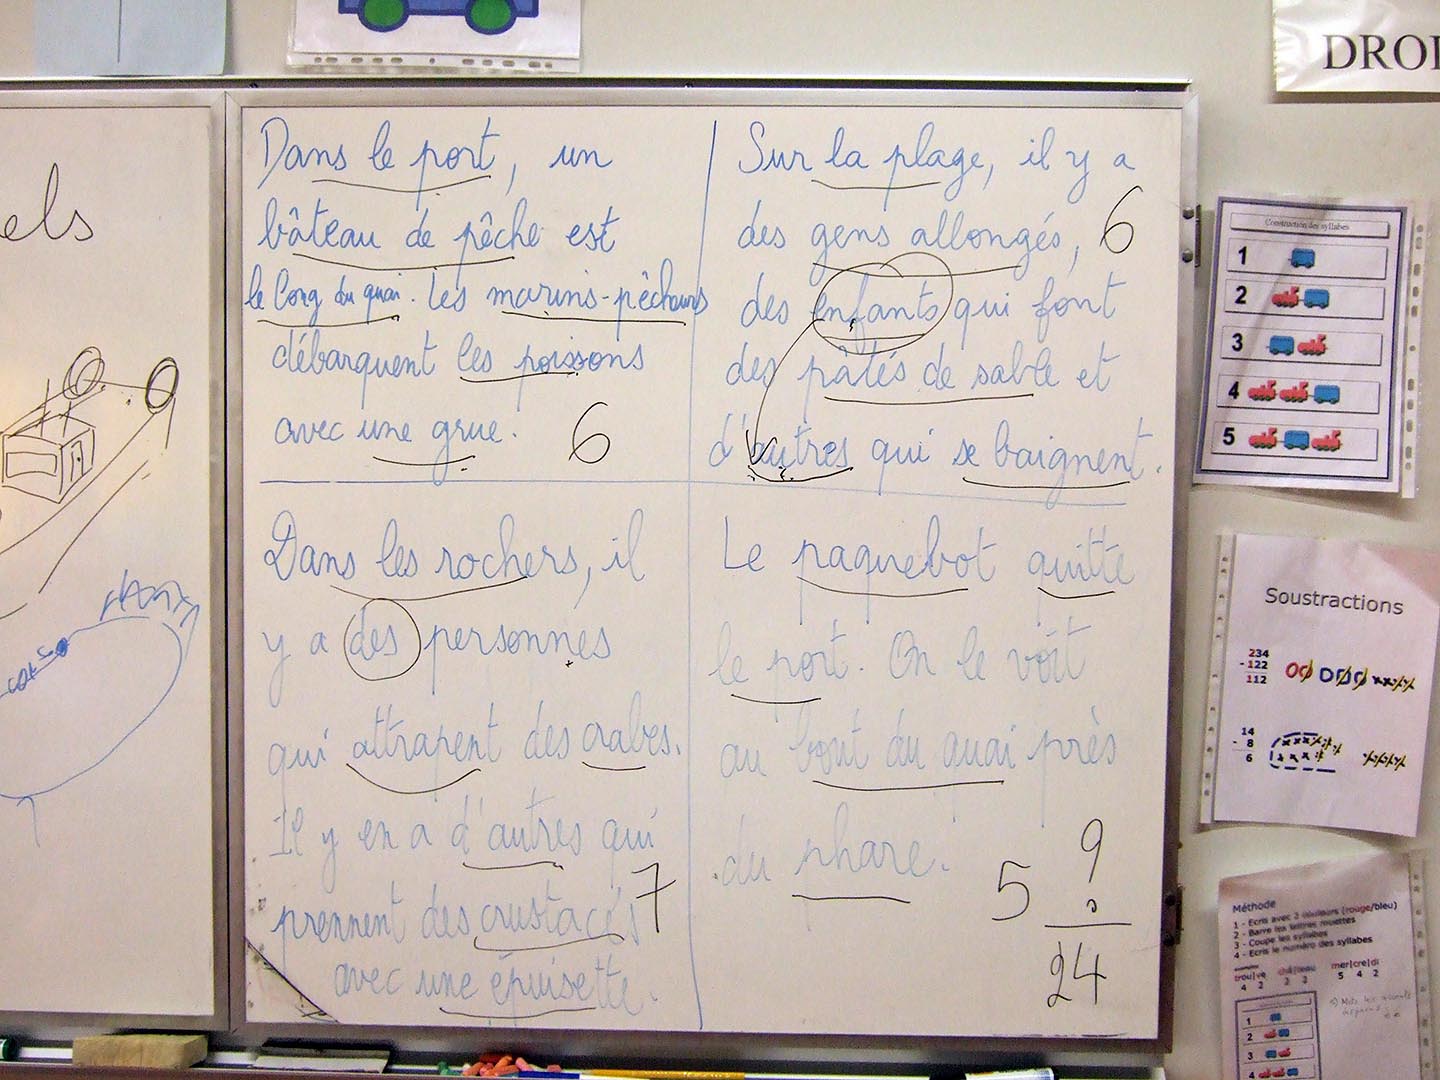 DROI
els
Dans le port, un
bâteau de pêche est
le long du quai. Les marins-pêcheurs
débarquent les poissons
avec une grue. 6
Sur la plage, il y a
des gens allongés, 6
des enfants qui font
des pâtés de sable et
d'autres qui se baignent.
Dans les rochers, il
y a des personnes
qui attrapent des crabes.
Il y en a d'autres qui
prennent des crustacés 7
avec une épuisette.
Le paquebot quitte
le port. On le voit
au bout du quai près
du phare.
5
9
24
Construction des syllabes
1
2
3
4
5
Soustractions
234
- 122
112
14
- 8
6
Méthode
1 - Ecris avec 2 couleurs (rouge/bleu)
2 - Barre les lettres muettes
3 - Coupe les syllabes
4 - Ecris le numéro des syllabes
trou|ve châ|teau mer|cre|di
4 2 2 2 5 4 2
1
2
3
4